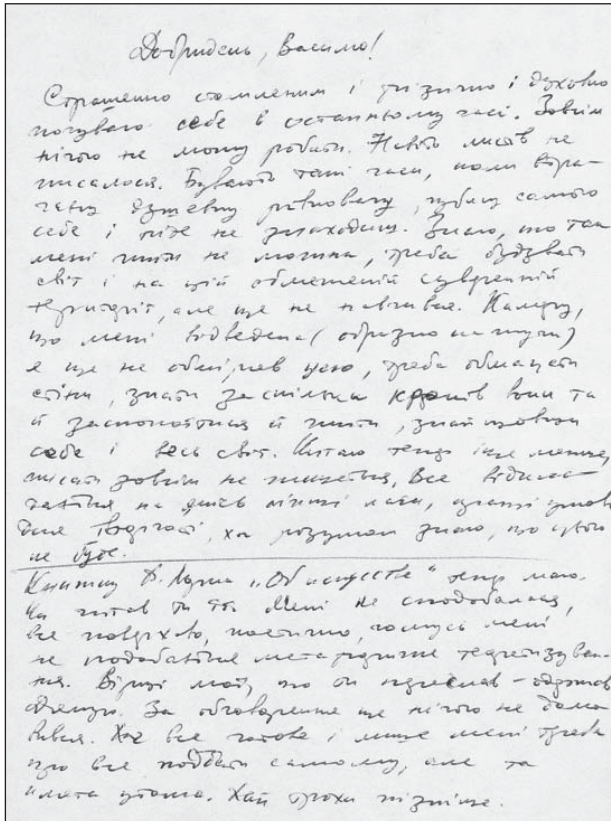 Добридень, Василю!
Страшенно стомленим і фізично і духовно
почуваю себе в останньому часі. Зовсім
нічого не можу робити. Навіть листів не
писалося. Бувають такі часи, коли втра-
чаєш душевну рівновагу, губиш самого
себе і ніде не знаходиш. Знаю, що так
мені жити не можна, треба будувати
світ і на цій обмеженій суверенній
території, але ще не навчився. Камеру,
що мені відведена (образно кажучи)
я ще не обміряв усю, треба обмацати
стіни, знати за скільки кроків вони та
й заспокоїтися й жити, знайшовши
себе і весь світ. Читаю тепер іще менше,
писати зовсім не пишеться. Все відкла-
дається на якісь пізніші часи, кращі умови
для творчості, хоч розумом знаю, що цього
не буде.
Книжку В. Луґина „Об искусстве" тепер маю.
Чи читав ти її? Мені не сподобалась,
все поверхово, поетично, чомусь мені
не подобається метафоричне теоретизуван-
ня. Вірші мої, що ти надіслав – одержав
За обговорення ще нічого не домо-
вився. Хоч все готове і лише мені треба
про все подбати самому, але та
клята утома. Хай трохи пізніше.